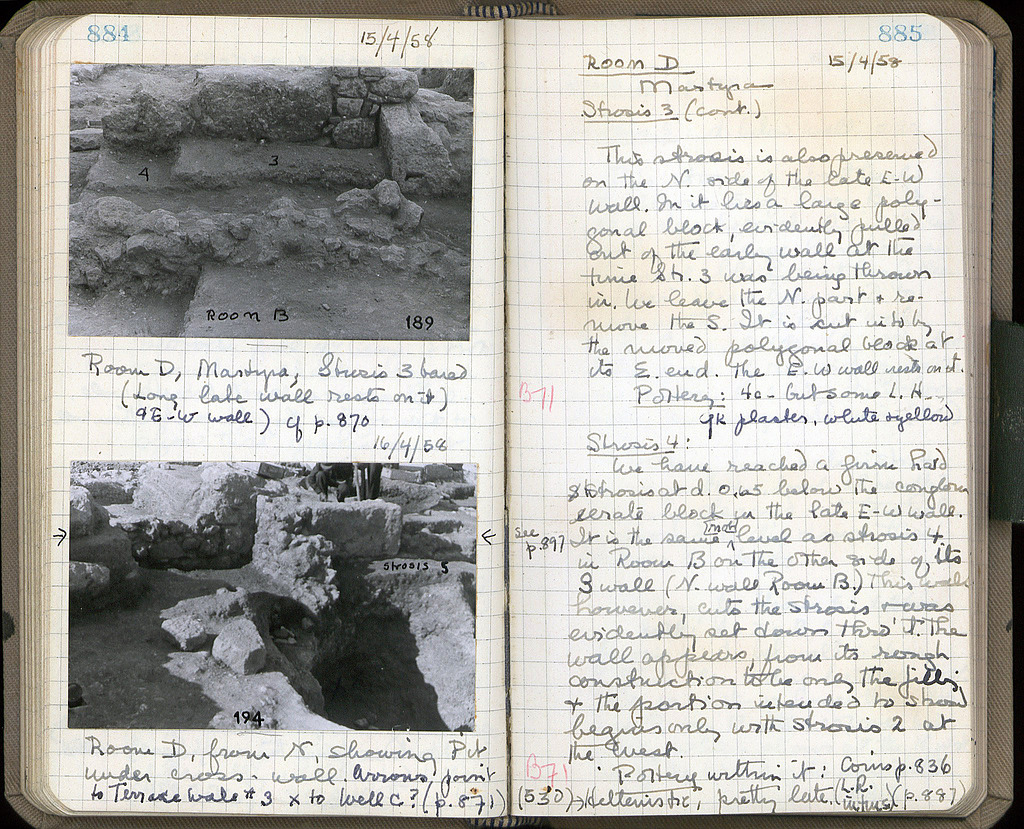 884
15/4/58
4
3
ROOM B
189
Room D, Martyra, Strosis 3 bared
(Long late wall rests on it)
E-W wall) cf p. 870
16/4/58
→
←
strosis 5
194
Room D, from N, showing Pit
under cross-wall. Arrows point
to Terrace Wall #3 x to Well C? (p. 871)
885
Room D
15/4/58
Martyra
Strosis 3 (cont.)
This strosis is also preserved
on the N. side of the late E-W
wall. In it lies a large poly-
gonal block, evidently pulled
out of the early wall at the
time Str. 3 was being thrown
in. We leave the N. part & re-
move the S. It is cut into by
the moved polygonal block at
its E. end. The E.W wall rests on it.
B71
Pottery: 4c - but some L. H.
Gk plaster, white & yellow
Strosis 4:
We have reached a firm hard
strosis at d. 0.65 below the conglom
erate block in the late E-W wall.
see p. 897
It is the same (not) level as strosis 4
in Room B on the other side of its
S wall (N. wall Room B.) This wall
however, cuts the strosis & was
evidently set down thro' it. The
wall appears, from its rough
construction to be only the filling
& the portion intended to show
begins only with strosis 2 at
the West.
B71
Pottery within it: Coins p. 836
(530) → Hellenistic, pretty late. (L.R. intrus) (p. 887)